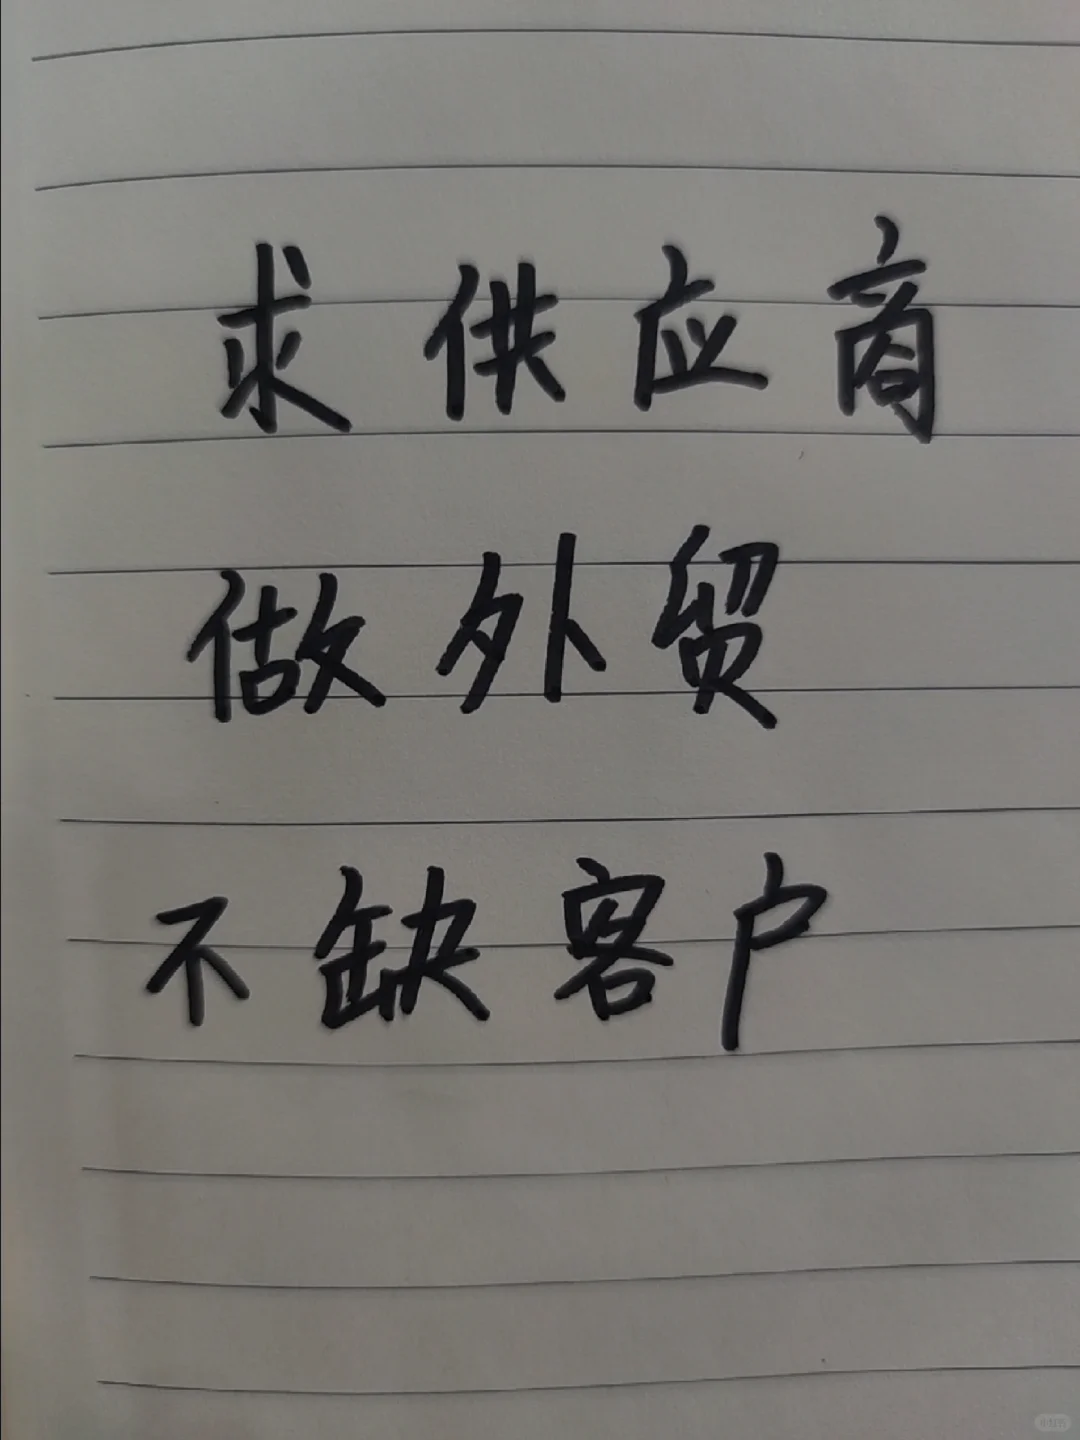 求供应商
做外贸
不缺客户